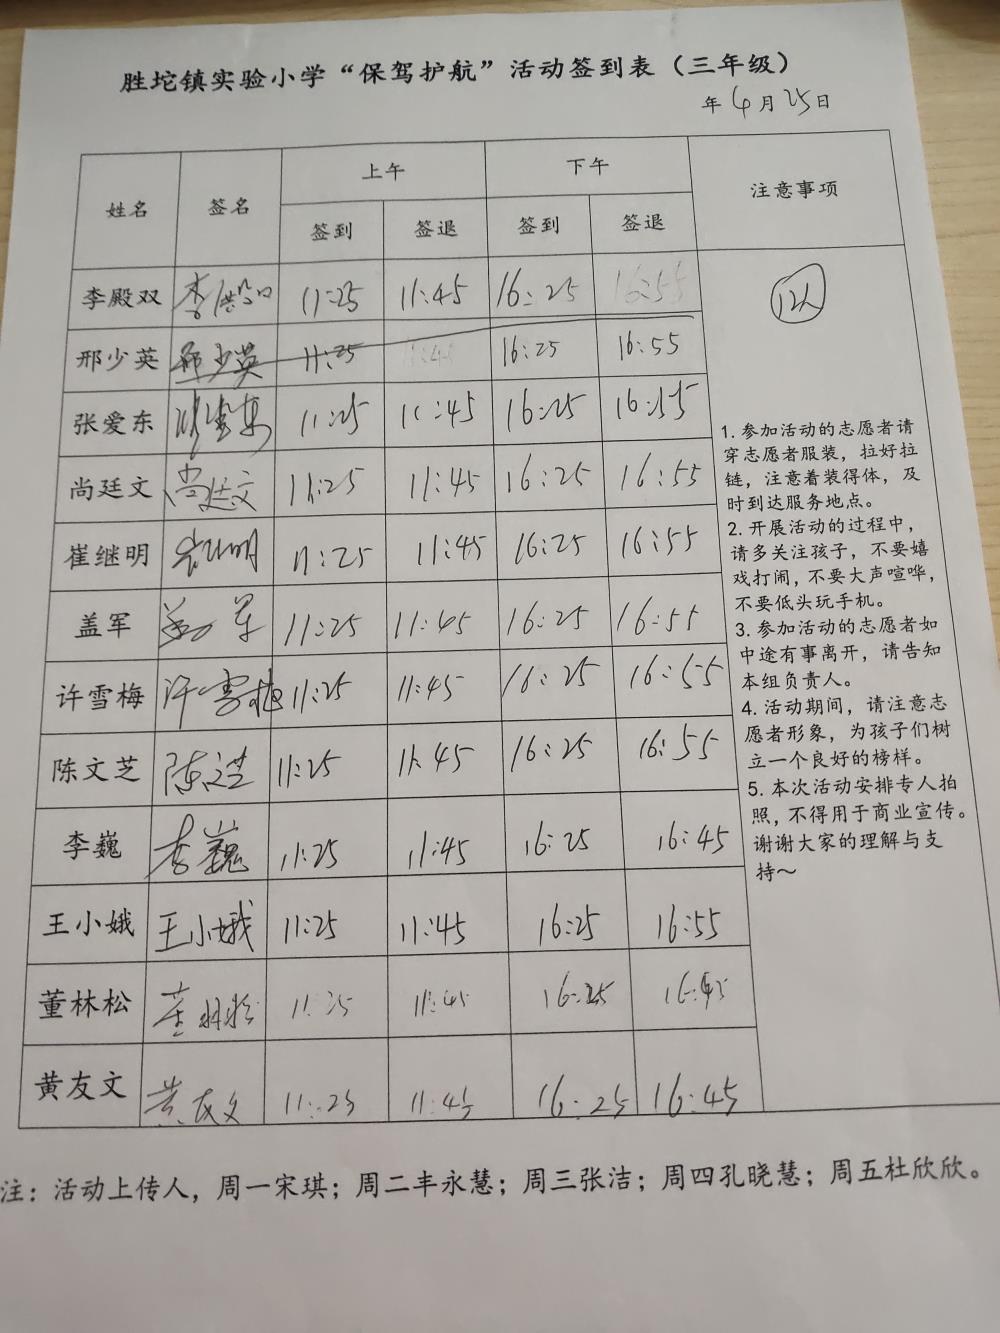 胜坨镇实验小学“保驾护航”活动签到表（三年级）
年4月25日
姓名 签名 上午 下午 注意事项
签到 签退 签到 签退
李殿双 11:25 11:45 16:25 16:55
12人
邢少英 邢少英 11:25 11:45 16:25 16:55
张爱东 张爱东 11:25 11:45 16:25 16:55
尚廷文 尚廷文 11:25 11:45 16:25 16:55
崔继明 11:25 11:45 16:25 16:55
盖军 盖军 11:25 11:45 16:25 16:55
许雪梅 许雪梅 11:25 11:45 16:25 16:55
陈文芝 陈文芝 11:25 11:45 16:25 16:55
李巍 李巍 11:25 11:45 16:25 16:45
王小娥 王小娥 11:25 11:45 16:25 16:55
董林松 董林松 11:25 11:45 16:25 16:45
黄友文 黄友文 11:25 11:45 16:25 16:45
1. 参加活动的志愿者请
穿志愿者服装，拉好拉
链，注意着装得体，及
时到达服务地点。
2. 开展活动的过程中，
请多关注孩子，不要嬉
戏打闹，不要大声喧哗，
不要低头玩手机。
3. 参加活动的志愿者如
中途有事离开，请告知
本组负责人。
4. 活动期间，请注意志
愿者形象，为孩子们树
立一个良好的榜样。
5. 本次活动安排专人拍
照，不得用于商业宣传。
谢谢大家的理解与支
持～
注：活动上传人，周一宋琪；周二丰永慧；周三张洁；周四孔晓慧；周五杜欣欣。